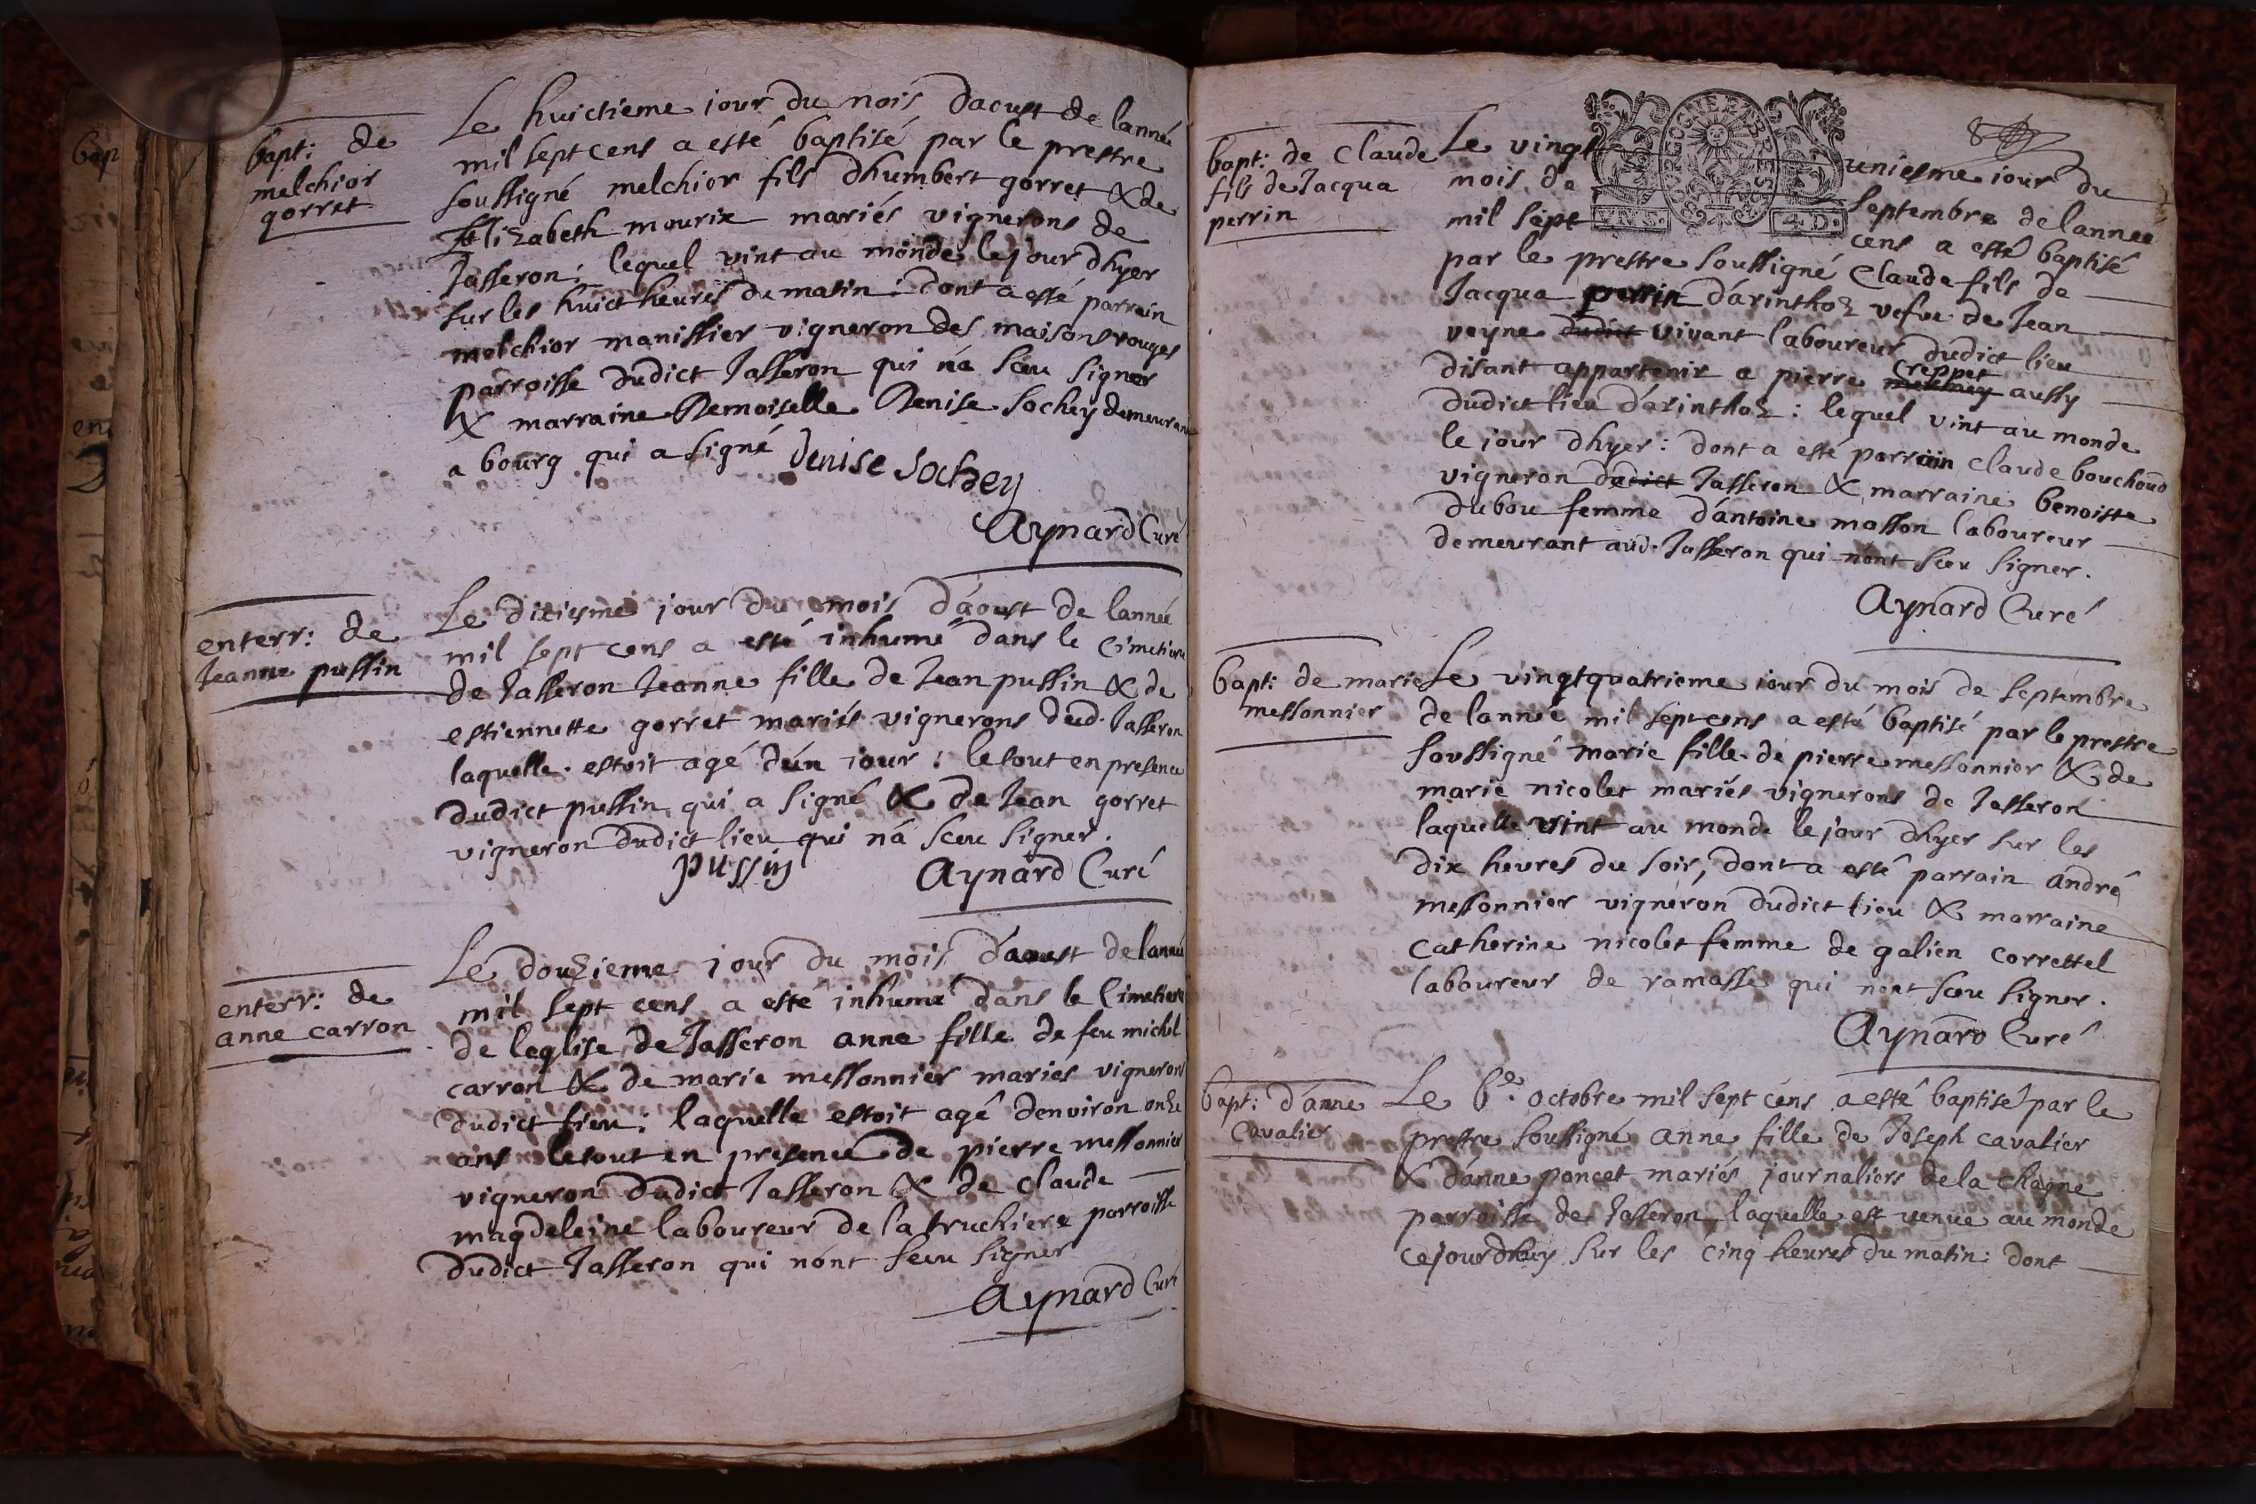 bapt: de
melchior
gorret
Le huictieme jour du mois daoust de lannée
mil sept cens a esté baptisé par le prestre
soussigné melchior fils dhumbert gorret & de
Elizabeth mourix mariés vignerons de
Jasseron; lequel vint au monde le jour dhyer
sur les huict heures du matin: dont a esté parrain
melchior manissier vigneron des maisons rouges
parroisse dudict Jasseron qui na sceu signer
& marraine Demoiselle Denise sochey demeurant
a bourg qui a signé Denise Sochey
Aynard Curé
enterr: de
Jeanne pussin
Le dixiesme jour du mois d'aoust de lannée
mil sept cens a esté inhumé dans le Cimetiere
de Jasseron Jeanne fille de Jean pussin & de
estiennette gorret mariés vignerons dud. Jasseron
laquelle estoit agé d'un jour: le tout en presence
dudict pussin qui a signé & de Jean gorret
vigneron dudict lieu qui na sceu signer.
pussin Aynard Curé
enterr: de
anne carron
Le douzieme jour du mois d'aoust de lannée
mil sept cens a esté inhumé dans le Cimetiere
de leglise de Jasseron anne fille de feu michel
carron & de marie messonnier mariés vignerons
dudict lieu: laquelle estoit agé denviron onze
ans le tout en presence de pierre messonnier
vigneron dudict Jasseron & de Claude
magdeleine laboureur de la truchiere parroisse
dudict Jasseron qui nont sceu signer
Aynard Curé
bapt: de Claude
fils de Jacqua
perrin
BOURGOGNE ET BRESSE
4.D.
Le vingt uniesme jour du
mois de septembre de lannée
mil sept cens a esté baptisé
par le prestre soussigné Claude fils de
Jacqua perrin d'arinthoz vefve de Jean
veyne dudict vivant laboureur dudict lieu
disant appartenir a pierre Creppet aussy
dudict lieu d'arinthoz: lequel vint au monde
le jour dhyer: dont a esté parrain claude bouchoud
vigneron dudict Jasseron & marraine benoiste
dubou femme d'antoine masson laboureur
demeurant aud. Jasseron qui nont sceu signer.
Aynard Curé
bapt: de marie
messonnier
Le vingtquatrieme jour du mois de septembre
de lannée mil sept cens a esté baptisé par le prestre
soussigné marie fille de pierre messonnier & de
marie nicolet mariés vignerons de Jasseron
laquelle vint au monde le jour dhyer sur les
dix heures du soir, dont a esté parrain andré
messonnier vigneron dudict lieu & marraine
catherine nicolet femme de galien correttel
laboureur de ramasse qui nont sceu signer.
Aynard Curé
bapt: d'anne
Cavalier
Le 6e. octobre mil sept cens a esté baptisé par le
prestre soussigné anne fille de Joseph cavalier
& d'anne poncet mariés journaliers de la chagne
parroisse de Jasseron, laquelle est venue au monde
cejourdhuy sur les cinq heures du matin: dont